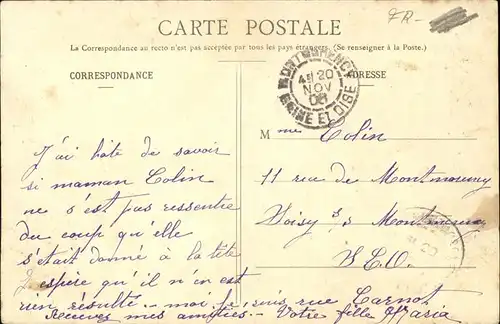 FR-
CARTE POSTALE
La Correspondance au recto n'est pas acceptée par tous les pays étrangers. (Se renseigner à la Poste.)
CORRESPONDANCE
ADRESSE
MONTMORENCY
20
NOV
SEINE ET OISE
Mme Colin
11 rue de Montmorency
Soisy s s Montmorency
S.E.O.
J'ai hate de savoir
si maman Colin
ne s'est pas ressentie
du coup qu'elle
s'était donné à la tête
J'espère qu'il n'en est
rien résulté. moi je suis rue Carnot
Recevez mes amitiés. Votre fille Maria